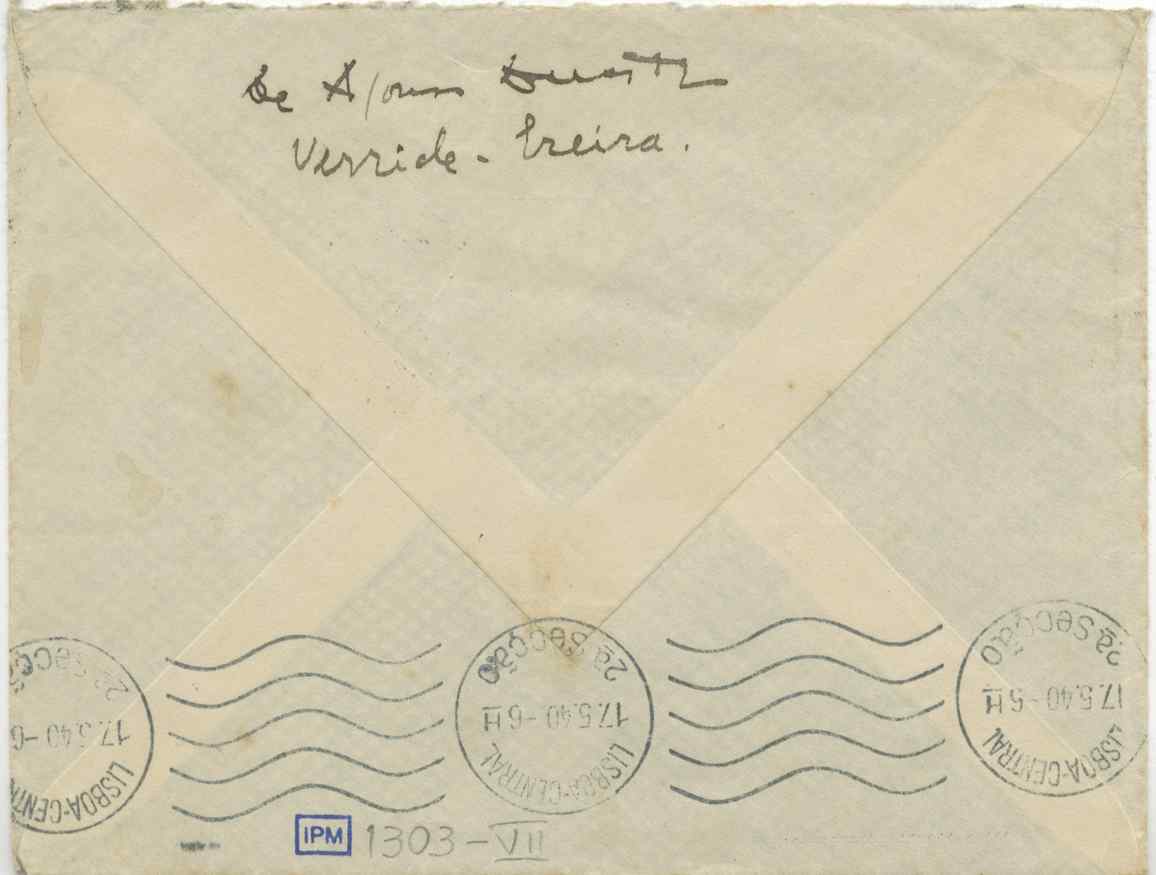 De Afonso Duarte
Verride - Ereira.
2ª SECÇÃO
17.5.40-6H
LISBOA-CENTRAL
2ª SECÇÃO
17.5.40-6H
LISBOA-CENTRAL
2ª SECÇÃO
17.5.40-6H
LISBOA-CENTRAL
IPM 1303-VII